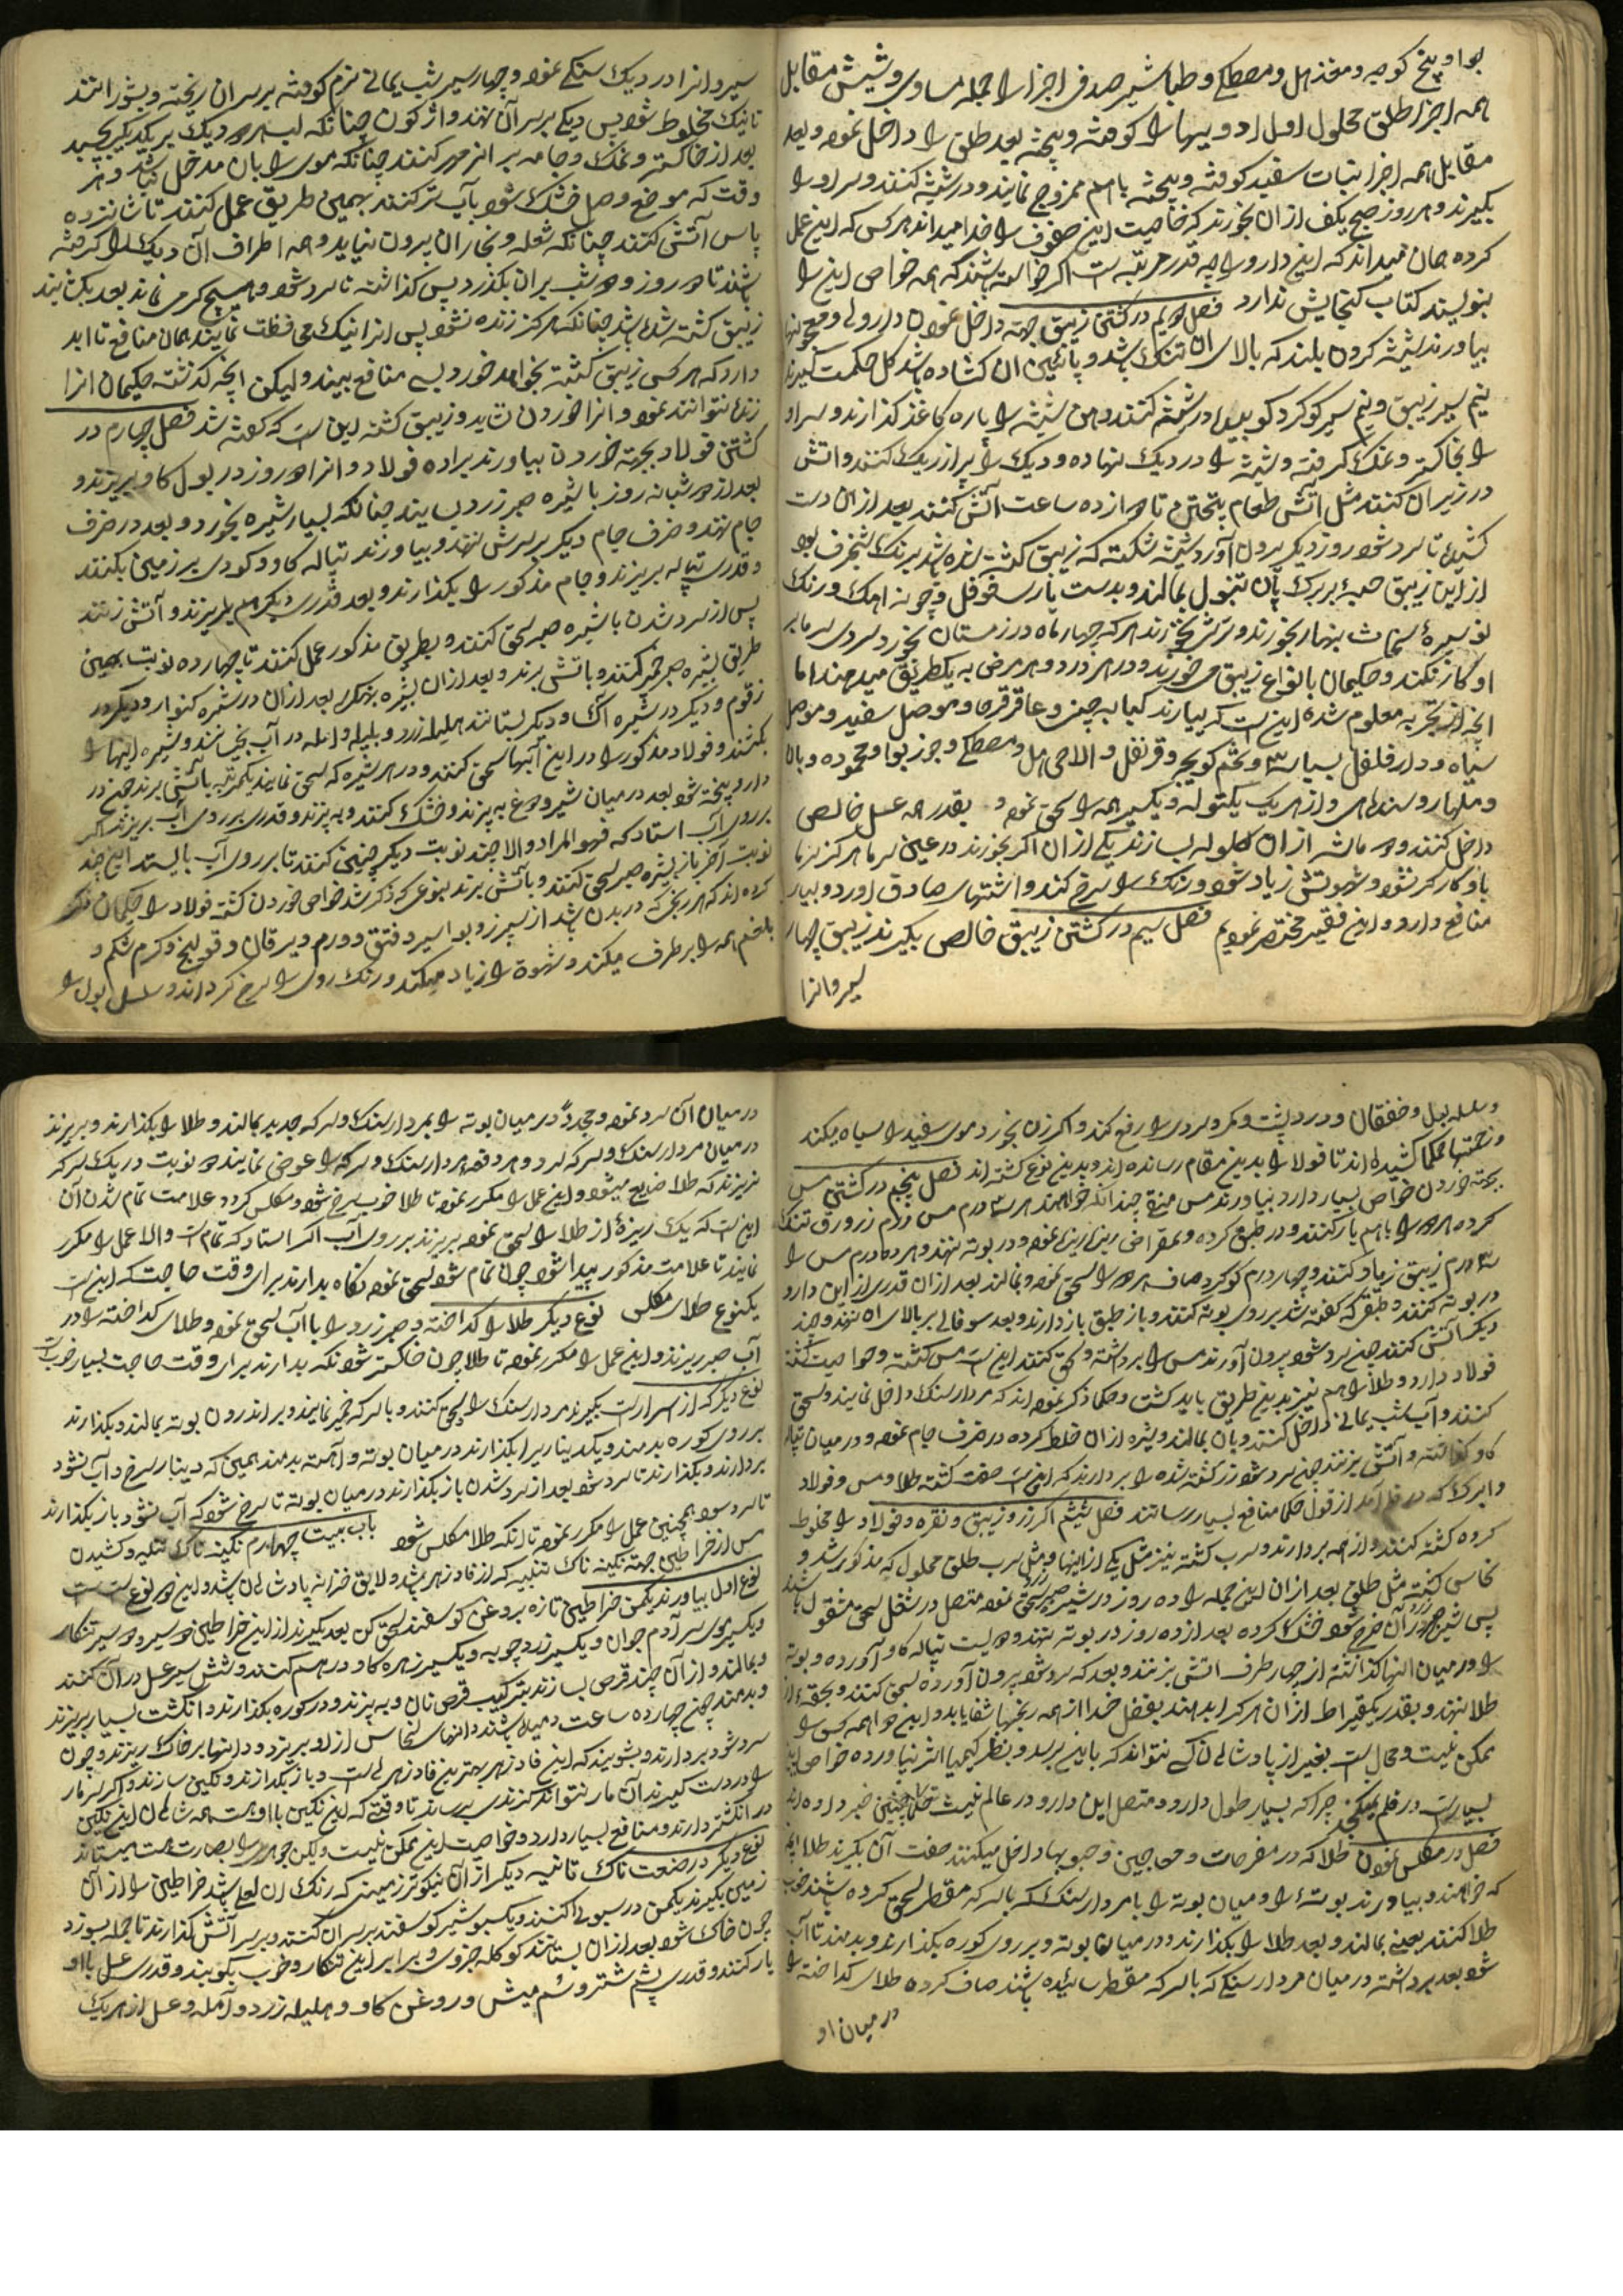 بوا و بیخ کوحه و مغز هل و مصطکی و طباشیر صدفی اجزا را جمله مساوی و شیش مقابل
همه اجزا طلق محلول اول ادویها را کوفته و پخته بعد طلق را داخل نموه و بعد
مقابل همه اجزا نبات سفید کوفته و پخته باهم ممزوج نمایند و در شیشه کنند و سر او را
بگیرند و هر روز صبح یکف از ان بخورند که خاصیت این صفوف را خدا میداند هرکس که این عمل
کرده همان میداند که این دارو را چه قدر مرتبه است اگر خواسته باشند که همه خواص این را
بنویسند کتاب گنجایش ندارد فصل دویم در کشتن زیبق جهة داخل نمودن داروئی و معجونها
بیاورند شیشه کردن بلند که بالای ان تنک باشد و پائین ان کشاده باشد کل حکمت گیرند
نیم سیر زیبق و نیم سیر کوکرد کوبیده در شیشه کنند و دهن شیشه را پاره کاغذ گذارند و سر او
را بخاکستر و نمک گرفته و شیشه را در دیک نهاده و دیک را پر از ریک کنند و اتش
در زیر ان کنند مثل آتش طعام پختن تا دوازده ساعت آتش کنند بعد از ان دست
کشیده تا سرد شود روز دیگر بیرون آورد شیشه شکسته که زیبق کشته شده باشد برنک شنجرف بود
از این زیبق حبه بر برک پان تنبول بمالند و بدست پارسه فوفل و چونه اهک و رنک
نو سیره بنهار بخورند و ترشی نخورند هرکه چهار ماه در زمستان بخورد سردی سرما بر
او کار نکند و حکیمان بانواع زیبق می خورند و در هر درد و هر مرض به یکطریق میدهند اما
انچه از تجربه معلوم شده این است که بیارند کبابه چینی و عاقرقرحا و موصل سفید و موصل
سیاه و دار فلفل بسیاسه و تخم کویچ و قرنفل و الاچی هل و مصطکی و جوز بوا و محموده و بالا
و ملهار و سندهی و از هر یک یکتوله و یکسیر همه را سحق نموه و بقدر همه عسل خالص
داخل کنند و دو ماشه از ان کلوله بسازند یکی از ان اگر بخورند در عین سرما هرگز سرما
باو کارکر نشود و شهوتش زیاد شود و رنک را سرخ کند و اشتهای صادق اورد و بسیار
منافع دارد و این فقیر مختصر نمودیم فصل سیم در کشتن زیبق خالص بگیرند زیبق چهار
سیر و انرا
سیر و انرا در دیک سنکی نموه و چهار سیر شب یمانی نرم کوفته بر سر ان ریخته و بشورانند
تا نیک مخلوط شود پس دیکی بر سر آن نهند واژکون چنانکه لب هر دو دیک بر یکدیگر بچسپد
بعد از خاکستر و نمک و جامه بر انر مهر کنند چنانکه موی را بان مدخل نباشد و هر
وقت که موضع وصل خشک شود بآب تر کنند بهمین طریق عمل کنند تا شانزده
پاس آتش کنند چنانکه شعله و بخار ان بیرون نیاید و همه اطراف آن دیک را گرفته
باشند تا دو روز و دو شب بر ان بگذرد پس گذاشته تا سرد شود و هیچ گرمی نماند بعد بگشایند
زیبق کشته شده باشد چنانکه هرگز زنده نشود پس انرا نیک محافظت نمایند همان منافع تا ابد
دارد که هر کس زیبق کشته بخواهد خورد بسی منافع بیند ولیکن انچه گذشته حکیمان انرا
زنده نتوانند نموه و انرا خوردن شاید و زیبق کشته این است که گفته شد فصل چهارم در
کشتن فولاد بجهته خوردن بیاورند براده فولاد و انرا دو روز در بول کاو بریزند و
بعد از دو شبانه روز با شیره صبر زرد بسایند چنانکه بسیار شیره بخورد و بعد در ظرف
جام نهند و ظرف جام دیگر بر سرش نهند و بیاورند تپاله کاو و کودی بر زمین بکنند
و قدری تپاله بریزند و جام مذکور را بگذارند و بعد قدری دیگر هم بریزند و آتش زنند
پس از سرد شدن با شیره صبر سحق کنند و بطریق مذکور عمل کنند تا چهارده نوبت بهمین
طریق بشیره صبر خمیر کنند و بآتش برند و بعد از ان بشیره بعد از ان در شیره کنوار و دیگر در
زقوم و دیگر در شیره آک و دیگر بستانند هلیله زرد و بلیله و امله در آب بخیسانند و شیره اینها را
بکشند و فولاد مذکور را در این آبها سحق کنند و در هر شیره که سحق نمایند یکمرتبه بآتش برند چنین در
دارو پخته شود بعد در میان شیر و دوغ به پزند و خشک کنند و به پزند و قدری بر روی آب بریزند اگر
بر روی آب استاد که فهو المراد والا چند نوبت دیگر چنین کنند تا بر روی آب بایستد این چند
نوبت آخر باز بشیره صبر سحق کنند و بآتش برند بنوعی که ذکر شد خواص خوردن کشته فولاد را حکیمان ذکر
کرده اند که هر رنجی که در بدن باشد از سپرز و بواسیر و فتق و ورم و یرقان و قولنج و کرم شکم و
بلغم همه را بر طرف میکند و شهوة را زیاد میکند و رنک روی را سرخ کرداند و سلسل بول را
و سلسله بول و خفقان و درد پشت و کمر و سردی را رفع کند و اگر زن بخورد موی سفید را سیاه میکند
و زحمتها حکما کشیده اند تا فولاد را بدین مقام رسانده اند و بدین نوع کشته اند فصل پنجم در کشتن مس
بجهته خوردن خواص بسیار دارد بیاورند مس چندانکه خواهند هر سه درم مس دو درم زر ورق تنک
کرده هر دو را باهم بار کنند و در طبق کرده و بمقراض ریزه ریزه نموه و در بوته نهند و هر ده درم مس را
سه درم زیبق زیاد کنند و چهار درم کوکرد صاف هر دو را سحق نموه و بمالند بعد از ان قدری از این دارو
در بوته کنند و طبقی که گفته شد بر روی بوته کنند و باز طبق باز دارند و بعد سوفالی بر بالای آن نهند و چند
دیک آتش کنند چون سرد شود بیرون آورند مس را برداشته و سحق کنند این است مس کشته و خواصیت کشته
فولاد دارد و طلا را هم نیز بدین طریق باید کشت و حکما ذکر نموه اند که مردارسنک داخل نمایند و سحق
کنند و آب شب یمانی داخل کنند و بان بمالند و شیره از ان خلط کرده در ظرف جام نموه و در میان تپاله
کاو گذاشته و آتش بزنند چون سرد شود زر کشته شده را بردارند که این است صفت کشته طلا و مس و فولاد
و ابرک که در قلم آمد از قول حکما منافع بسیار رسانند فصل ششم اگر زر و زیبق و نقره و فولاد را مخلوط
کرده کشته کنند و از همه بردارند و سرب کشته نیز مثل یکی از اینها و مثل سرب طلق محلول که مذکور شد و
نحاس کشته مثل طلق بعد از ان این جمله را ده روز در شیره صبر سحق نموه متصل در شغل سحق مشغول باشند
پس چون خشک کرده بعد از ده روز در بوته نهند و دویست تپاله کاو آورده و بوته
را در میان انها گذاشته از چهار طرف اتش بزنند و بعد که سرد شود بیرون آورده سحق کنند و بحقه از
طلا نهند و بقدر یکقیراط از ان هرکرا بدهند بفضل خدا از همه رنجها شفا یابد و این دوا همه کس را
ممکن نیست و محال است بغیر از پادشاهان کسی نتواند که باین برسد و بنظر کیمیا اثر نیاورده خواص اینها
بسیار است در قلم نمیگنجد چرا که بسیار طول دارد و متصل این دارو در عالم نیست حکما چنین خبر داده اند
فصل در مکلس نمودن طلا که در مفرحات و معاجین و حبوبها داخل میکنند صفت آن بگیرند طلا انچه
که خواهند و بیاورند بوتهٔ را و میان بوته را با مردارسنک که با سرکه مقطر سحق کرده باشند خوب
طلا کنند یعنی بمالند و بعد طلا را بگذارند و در میان بوته و بر روی کوره بگذارند و بدمند تا آب
شود بعد برداشته در میان مردارسنکی که با سرکه مقطر سائیده باشند صاف کرده طلای گداخته را
در میان او
در میان آن سرد نموه و مجددً در میان بوته را بمردارسنک و سرکه جدید بمالند و طلا را بگذارند و بریزند
در میان مردارسنک و سرکه سرد و هر دفعه مردارسنک و سرکه را عوض نمایند دو نوبت در یک سرکه
نریزند که طلا ضایع میشود و این عمل را مکرر نموه تا طلا خوب سرخ شود و مکلس کردد علامت تمام شدن آن
این است که یک ریزهٔ از طلا را سحق نموه بریزند بر روی آب اگر استاد که تمام است والا عمل را مکرر
نمایند تا علامت مذکور پیدا شود چون تمام شود سحق نموه نگاه بدارند برای وقت حاجت که این است
یکنوع طلای مکلس نوع دیگر طلا را گداخته و صبر زرد را با آب سحق نموه و طلای گداخته را در
آب صبر ریزند و این عمل را مکرر نموه تا طلا چون خاکستر شود نگه بدارند برای وقت حاجت بسیار خوبست
نوع دیگر که از اسرار است بگیرند مردارسنک را سحق کنند و با سرکه خمیر نمایند و بر اندرون بوته بمالند و بگذارند
بر روی کوره بدمند و یکدینار را بگذارند در میان بوته و آهسته بدمند همین که دینار سرخ و آب نشود
بردارند و بگذارند تا سرد شود بعد از سرد شدن باز بگذارند در میان بوته تا سرخ شود که آب نشود باز بگذارند
تا سرد شود همچنین عمل را مکرر نموه تا انکه طلا مکلس شود باب بیست چهارم نکینه ناک تنکیه و کشیدن
مس از خراطین جهته نکینه ناک تنبیه که از فادزهر باشد و لایق خزانه پادشاهان باشد و این دو نوع است
نوع اول بیاورند یکمن خراطین تازه بروغن کوسفند سحق کن بعد بگیرند از این خراطین دو سیر و دو سیر تنکار
و یکسیر موی سر آدم جوان و یکسیر زردچوبه و یکسیر زهره کاو درهم کنند و شش سیر عسل در آن کنند
و بمالند و از آن چند قرص بسازند بترکیب قرص نان و به پزند و در کوره بگذارند و انگشت بسیار بریزند
و بدمند چون چهارده ساعت دمیده باشند دانهای نحاس از او بریزد و دانها بر خاک ریزند و چون
سرد شود بردارند و بشویند که این فادزهر بهترین فادزهرهاست و باز بگدازند و نکین سازند و اگر سر مار
را در دست گیرند آن مار نتواند گزندی برساند تا وقتی که این نکین با او هست همه شاهان این نکین
در انگشتر دارند و منافع بسیار دارد و خواصیت این ممکن نیست ولیکن جوهری را بصارت هست میستاند
نوع دیگر در صنعت ناک ثانیه دیگر از آن نیکوتر زمینی که رنک ان لعلی باشد خراطین را از آن
زمین بگیرند یکمن در سبوئی کنند و یکسبو شیر کوسفند بر سر ان کنند و بر سر آتش گذارند تا جمله بسوزد
چون خاک شود بعد از ان بستانند کوکله جزوی و برابر این تنکار و خوب بکوبند و قدری عسل با او
بار کنند و قدری پشم شتر و سُم میش و روغن کاو و هلیله زرد و آمله و عسل از هر یک